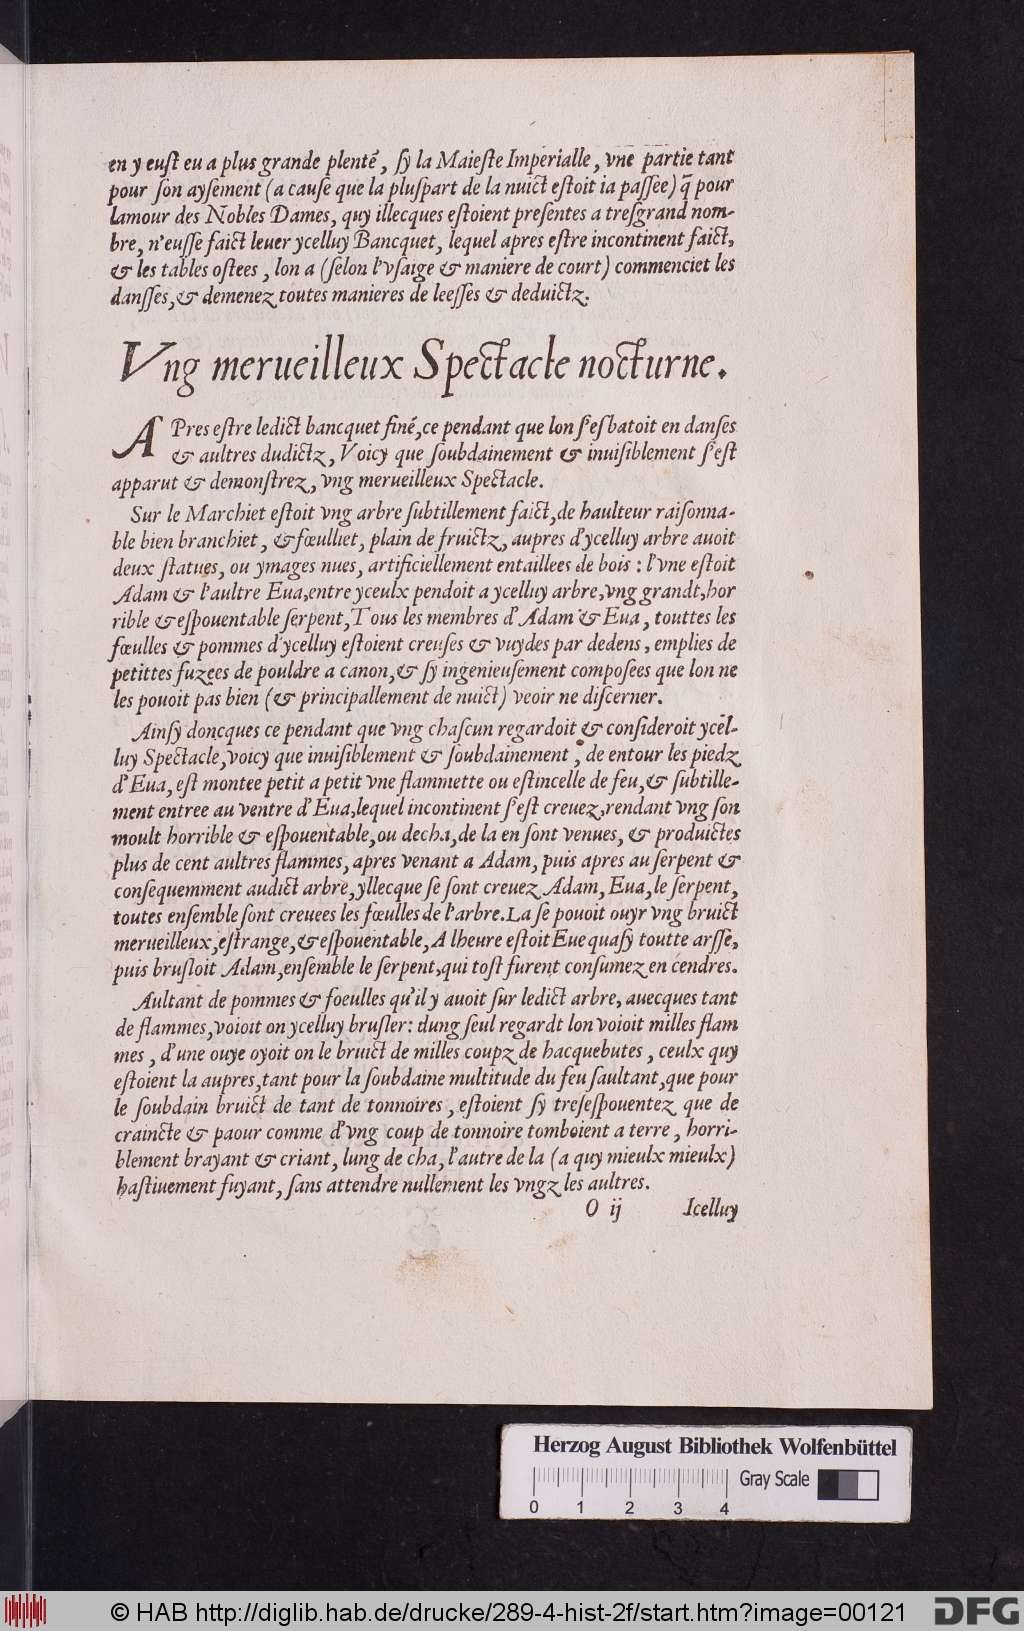 en y eust eu a plus grande plentē, sy la Maieste Imperialle, vne partie tant
pour son aysement (a cause que la pluspart de la nuict estoit ia passee) q̄ pour
lamour des Nobles Dames, quy illecques estoient presentes a tresgrand nom-
bre, n'eusse faict leuer ycelluy Bancquet, lequel apres estre incontinent faict,
& les tables ostees, lon a (selon l'vsaige & maniere de court) commenciet les
dansses, & demenez toutes manieres de leesses & deduictz.
Vng merueilleux Spectacle nocturne.
APres estre ledict bancquet finé, ce pendant que lon s'esbatoit en danses
& aultres dudictz, Voicy que soubdainement & inuisiblement s'est
apparut & demonstrez, vng merueilleux Spectacle.
Sur le Marchiet estoit vng arbre subtillement faict, de haulteur raisonna-
ble bien branchiet, & fœulliet, plain de fruictz, aupres d'ycelluy arbre auoit
deux statues, ou ymages nues, artificiellement entaillees de bois : l'vne estoit
Adam & l'aultre Eua, entre yceulx pendoit a ycelluy arbre, vng grandt, hor
rible & espouentable serpent, Tous les membres d'Adam & Eua, touttes les
fœulles & pommes d'ycelluy estoient creuses & vuydes par dedens, emplies de
petittes fuzees de pouldre a canon, & sy ingenieusement composees que lon ne
les pouoit pas bien (& principallement de nuict) veoir ne discerner.
Ainsy doncques ce pendant que vng chascun regardoit & consideroit ycel-
luy Spectacle, voicy que inuisiblement & soubdainement, de entour les piedz
d'Eua, est montee petit a petit vne flammette ou estincelle de feu, & subtille-
ment entree au ventre d'Eua, lequel incontinent s'est creuez, rendant vng son
moult horrible & espouentable, ou decha, de la en sont venues, & produictes
plus de cent aultres flammes, apres venant a Adam, puis apres au serpent &
consequemment audict arbre, yllecque se sont creuez Adam, Eua, le serpent,
toutes ensemble sont creuees les fœulles de l'arbre. La se pouoit ouyr vng bruict
merueilleux, estrange, & espouentable, A lheure estoit Eue quasy toutte arsse,
puis brusloit Adam, ensemble le serpent, qui tost furent consumez en cendres.
Aultant de pommes & foeulles qu'il y auoit sur ledict arbre, auecques tant
de flammes, voioit on ycelluy brusler : dung seul regardt lon voioit milles flam
mes, d'une ouye oyoit on le bruict de milles coupz de hacquebutes, ceulx quy
estoient la aupres, tant pour la soubdaine multitude du feu saultant, que pour
le soubdain bruict de tant de tonnoires, estoient sy tresespouentez que de
craincte & paour comme d'vng coup de tonnoire tomboient a terre, horri-
blement brayant & criant, lung de cha, l'autre de la (a quy mieulx mieulx)
hastiuement fuyant, sans attendre nullement les vngz les aultres.
O ij Icelluy
Herzog August Bibliothek Wolfenbüttel
Gray Scale
0 1 2 3 4
© HAB http://diglib.hab.de/drucke/289-4-hist-2f/start.htm?image=00121
DFG